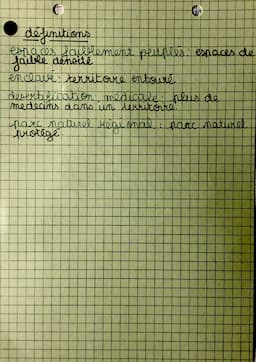 définitions
espaces faiblement peuplés : espaces de
faible densité
enclavé : territoire entouré
desertification médicale : plus de
medecins dans un territoire
parc naturel régional : parc naturel
protégé